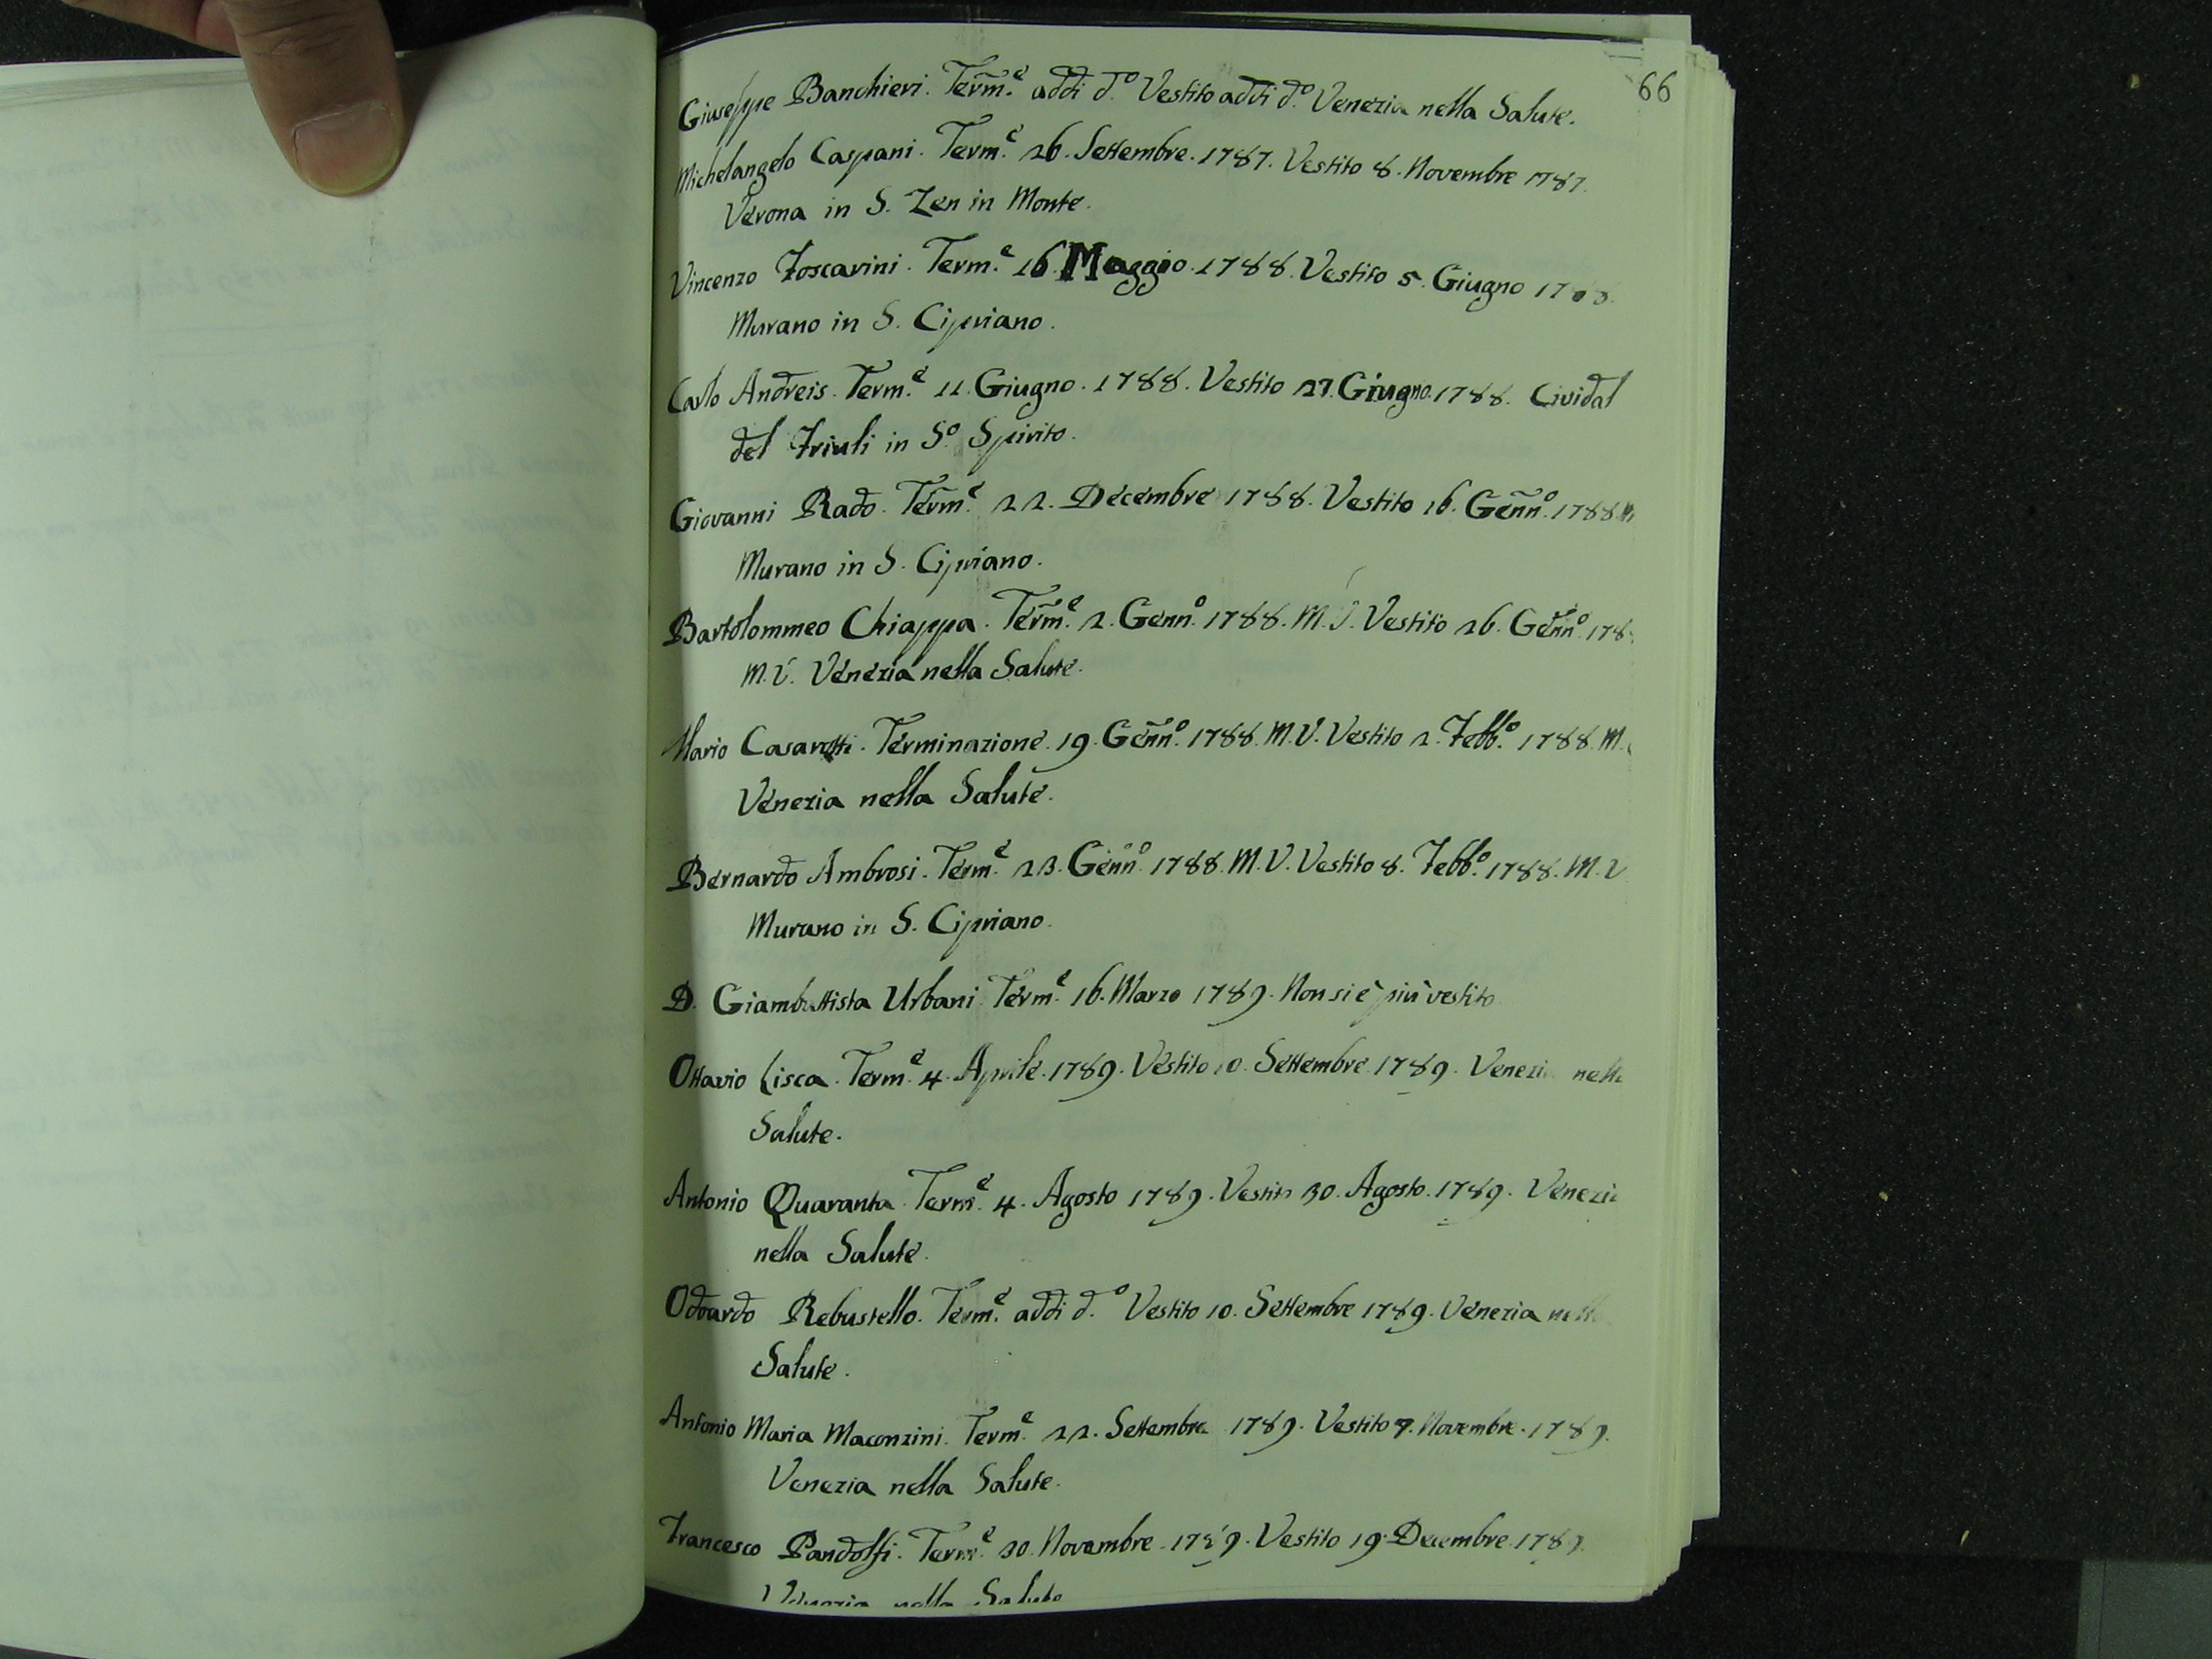 66
Giuseppe Banchieri. Term.e addi d.o Vestito addi d.o Venezia nella Salute.
Michelangelo Caspani. Term.e 26. Settembre. 1787. Vestito 8. Novembre 1787.
Verona in S. Zen in Monte.
Vincenzo Foscarini. Term.e 16. Maggio. 1788. Vestito 5. Giugno 1788.
Murano in S. Cipriano.
Carlo Andreis. Term.e 11. Giugno. 1788. Vestito 27. Giugno. 1788. Cividal
del Friuli in S.o Spirito.
Giovanni Rado. Term.e 22. Decembre 1788. Vestito 16. Genn.o 1788 M
Murano in S. Cipriano.
Bartolommeo Chiappa. Term.e 2. Genn.o 1788. M.V. Vestito 26. Genn.o 178
M.V. Venezia nella Salute.
Mario Casarotti. Terminazione. 19. Genn.o 1788. M.V. Vestito 2. Febb.o 1788. M.
Venezia nella Salute.
Bernardo Ambrosi. Term.e 23. Genn.o 1788. M.V. Vestito 8. Febb.o 1788. M.V
Murano in S. Cipriano.
D. Giambattista Urbani. Term.e 16. Marzo 1789. Non si è più vestito.
Ottavio Lisca. Term.e 4. Aprile. 1789. Vestito 10. Settembre 1789. Venezia nella
Salute.
Antonio Quaranta. Term.e 4. Agosto 1789. Vestito 30. Agosto. 1789. Venezia
nella Salute.
Odoardo Rebustello. Term.e addi d.o Vestito 10. Settembre 1789. Venezia nella
Salute.
Antonio Maria Maconzini. Term.e 22. Settembre 1789. Vestito 7. Novembre. 1789.
Venezia nella Salute.
Francesco Pandolfi. Term.e 30. Novembre. 1789. Vestito 19. Decembre. 1789.
Venezia nella Salute